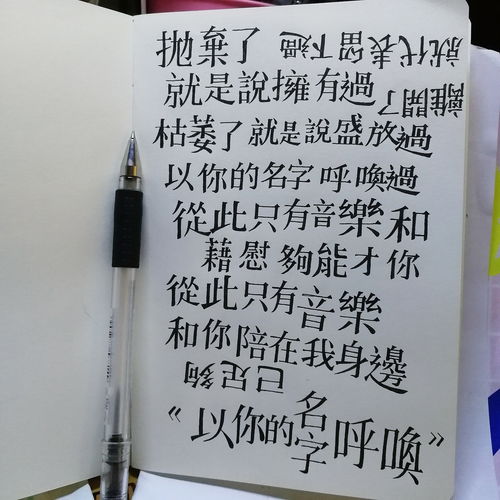 拋棄了 就代表留下過
就是說擁有過 離開了
枯萎了就是說盛放過
以你的名字呼喚過
從此只有音樂和
藉慰夠能才你
從此只有音樂
和你陪在我身邊
已足夠
“以你的名字呼喚”